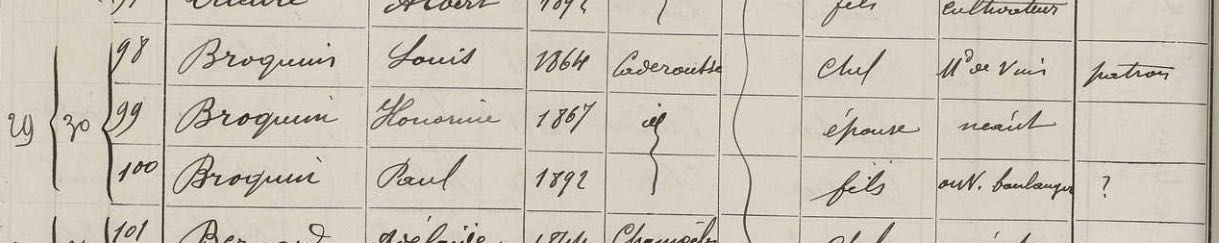 Albert 1892 fils cultivateur
98 Broquin Louis 1864 Caderousse chef Md de Vins patron
29 30 99 Broquin Honorine 1867 id épouse néant
100 Broquin Paul 1892 fils ouv. boulanger ?
101